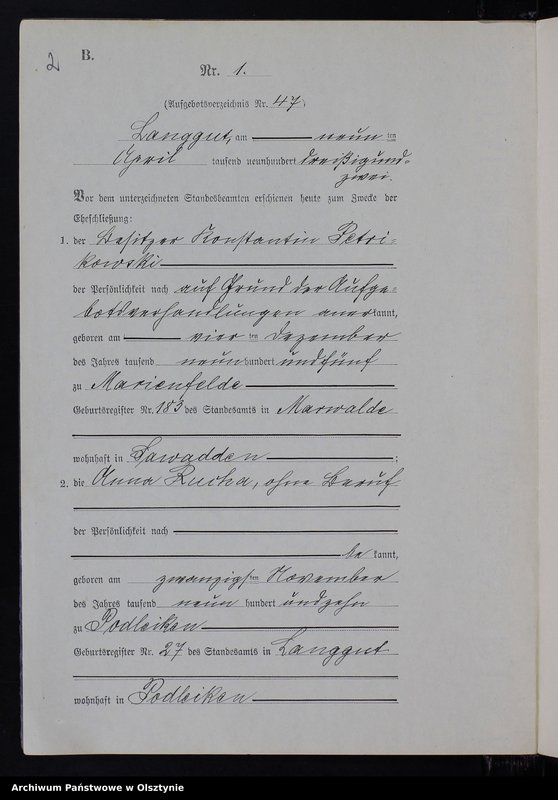 2
B.
Nr. 1.
(Aufgebotsverzeichnis Nr. 47)
Langgut, am neunten
April tausend neunhundert dreißigund=
zwei.
Vor dem unterzeichneten Standesbeamten erschienen heute zum Zwecke der
Eheschließung:
1. der Besitzer Konstantin Petri=
kowski
der Persönlichkeit nach auf Grund der Aufge=
botsverhandlungen anerkannt,
geboren am vierten Dezember
des Jahres tausend neunhundert undfünf
zu Marienfelde
Geburtsregister Nr. 183 des Standesamts in Marwalde
wohnhaft in Sawadden;
2. die Anna Rucha, ohne Beruf
der Persönlichkeit nach
bekannt,
geboren am zwanzigsten November
des Jahres tausend neunhundert undzehn
zu Podleiken
Geburtsregister Nr. 27 des Standesamts in Langgut
wohnhaft in Podleiken
Archiwum Państwowe w Olsztynie